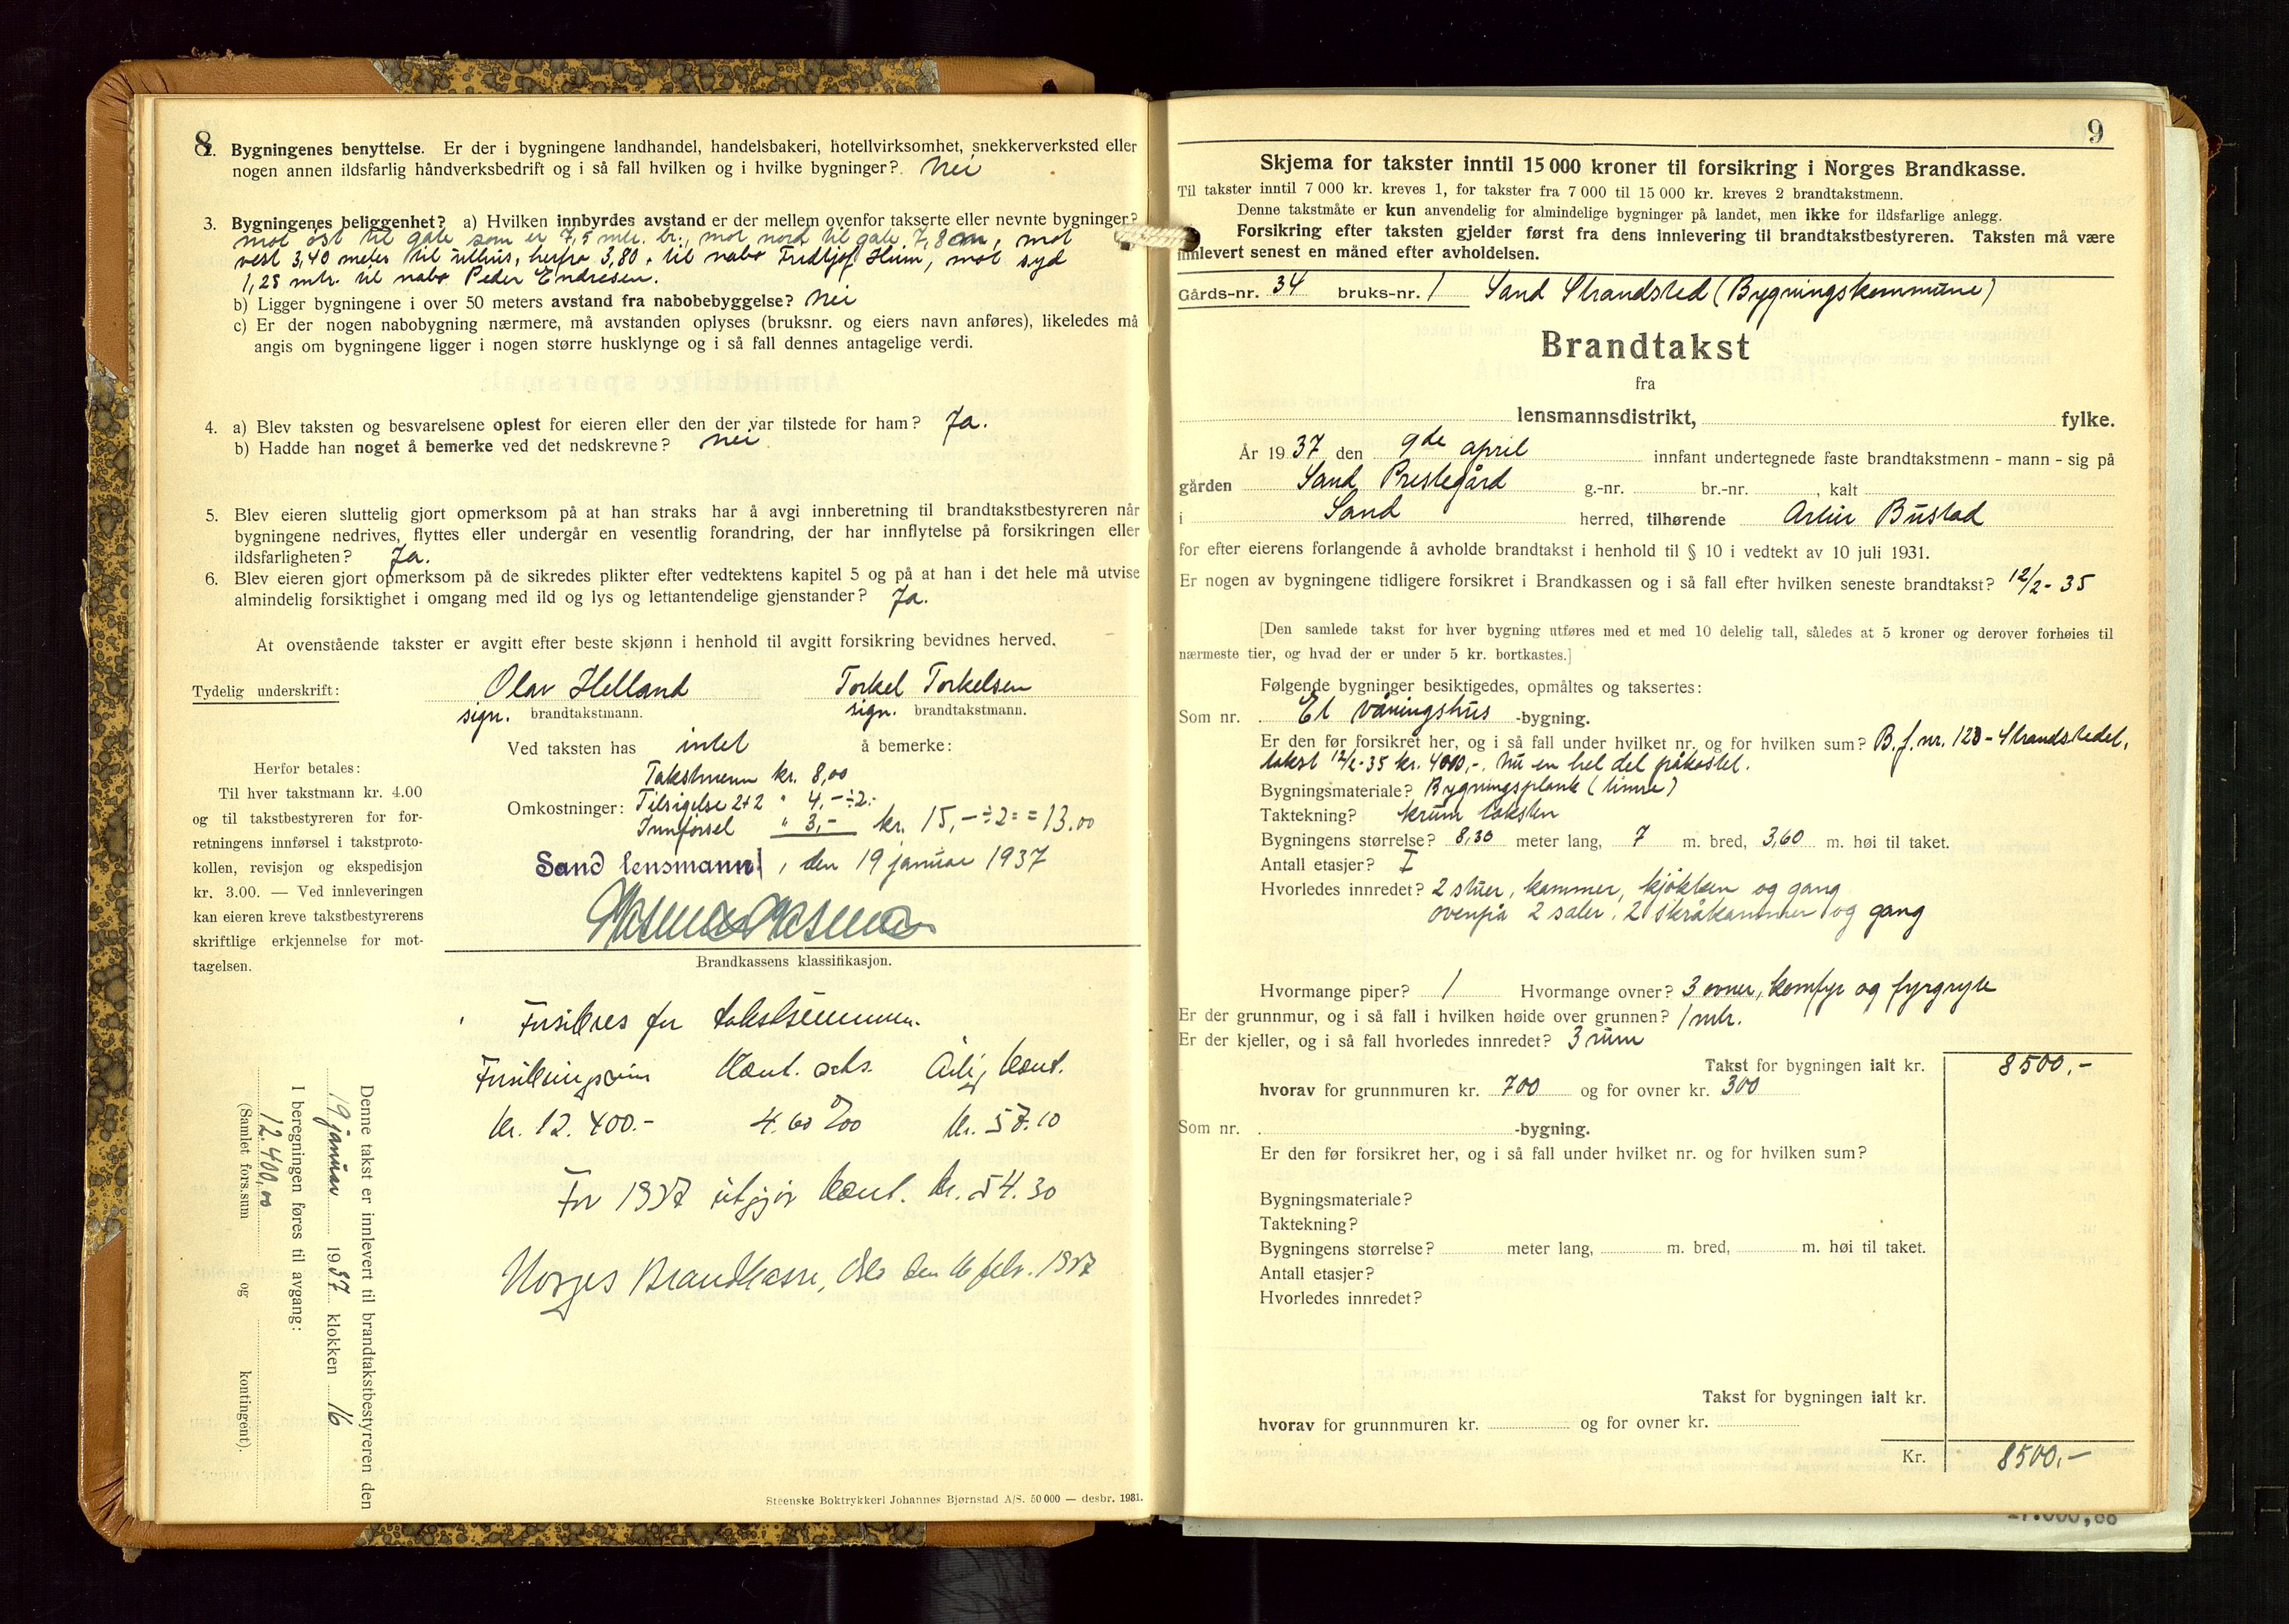 8
2. Bygningenes benyttelse. Er der i bygningene landhandel, handelsbakeri, hotellvirksomhet, snekkerverksted eller
nogen annen ildsfarlig håndverksbedrift og i så fall hvilken og i hvilke bygninger? Nei
3. Bygningenes beliggenhet? a) Hvilken innbyrdes avstand er der mellem ovenfor takserte eller nevnte bygninger?
mot öst til gate som er 7,5 mtr. br., mot nord til gate 7,8 , mot
vest 3,40 meter til uthus, herfra 3,80 . til nabo Fridtjof Hum, mot syd
1,25 mtr. til nabo Peder Endresen.
b) Ligger bygningene i over 50 meters avstand fra nabobebyggelse? Nei
c) Er der nogen nabobygning nærmere, må avstanden oplyses (bruksnr. og eiers navn anføres), likeledes må
angis om bygningene ligger i nogen større husklynge og i så fall dennes antagelige verdi.
4. a) Blev taksten og besvarelsene oplest for eieren eller den der var tilstede for ham? Ja.
b) Hadde han noget å bemerke ved det nedskrevne? nei
5. Blev eieren sluttelig gjort opmerksom på at han straks har å avgi innberetning til brandtakstbestyreren når
bygningene nedrives, flyttes eller undergår en vesentlig forandring, der har innflytelse på forsikringen eller
ildsfarligheten? Ja.
6. Blev eieren gjort opmerksom på de sikredes plikter efter vedtektens kapitel 5 og på at han i det hele må utvise
almindelig forsiktighet i omgang med ild og lys og lettantendelige gjenstander? Ja.
At ovenstående takster er avgitt efter beste skjønn i henhold til avgitt forsikring bevidnes herved.
Tydelig underskrift: Olav Helland Torkel Torkelsen
sign. brandtakstmann. sign. brandtakstmann.
Ved taksten has intet å bemerke:
Takstmenn kr. 8,00
Omkostninger: Tilsigelse 2+2 " 4,-÷2.-
Innförsel " 3,- kr. 15,-÷2 = 13.00
Sand lensmann , den 19 januar 1937
Herfor betales:
Til hver takstmann kr. 4.00
og til takstbestyreren for for-
retningens innførsel i takstproto-
kollen, revisjon og ekspedisjon
kr. 3.00. — Ved innleveringen
kan eieren kreve takstbestyrerens
skriftlige erkjennelse for mot-
tagelsen.
Brandkassens klassifikasjon.
Forsikres for takstsummen.
Forsikringssum Kont. sats. Årlig kont.
kr. 12.400.- 4.60 ‰ kr. 57.10
For 1937 utgjør kont. kr. 54.30
Norges Brandkasse, Oslo den 16 febr. 1937
Denne takst er innlevert til brandtakstbestyreren den
19 januar 1937 klokken 16
I beregningen føres til avgang:
12.400,00
(Samlet fors.sum og kontingent).
Steenske Boktrykkeri Johannes Bjørnstad A/S. 50 000 — desbr. 1931.
9
Skjema for takster inntil 15 000 kroner til forsikring i Norges Brandkasse.
Til takster inntil 7 000 kr. kreves 1, for takster fra 7 000 til 15 000 kr. kreves 2 brandtakstmenn.
Denne takstmåte er kun anvendelig for almindelige bygninger på landet, men ikke for ildsfarlige anlegg.
Forsikring efter taksten gjelder først fra dens innlevering til brandtakstbestyreren. Taksten må være
innlevert senest en måned efter avholdelsen.
Gårds-nr. 34 bruks-nr. 1 Sand Strandsted (Bygningskommune)
Brandtakst
fra
lensmannsdistrikt, fylke.
År 1937 den 9de april innfant undertegnede faste brandtakstmenn - mann - sig på
gården Sand Prestegård g.-nr. br.-nr. , kalt
i Sand herred, tilhørende Artur Bustad
for efter eierens forlangende å avholde brandtakst i henhold til § 10 i vedtekt av 10 juli 1931.
Er nogen av bygningene tidligere forsikret i Brandkassen og i så fall efter hvilken seneste brandtakst? 12/2-35
[Den samlede takst for hver bygning utføres med et med 10 delelig tall, således at 5 kroner og derover forhøies til
nærmeste tier, og hvad der er under 5 kr. bortkastes.]
Følgende bygninger besiktigedes, opmåltes og taksertes:
Som nr. Et våningshus -bygning.
Er den før forsikret her, og i så fall under hvilket nr. og for hvilken sum? B.f.nr. 120 - Strandstedet,
takst 12/2-35 kr. 4000,-. Nu en hel del påkostet.
Bygningsmateriale? Bygningsplank (tinne)
Taktekning? krum taksten
Bygningens størrelse? 8,30 meter lang, 7 m. bred, 3,60 m. høi til taket.
Antall etasjer? I
Hvorledes innredet? 2 stuer, kammer, kjökken og gang
ovenpå 2 saler, 2 skråkammer og gang
Hvormange piper? 1 Hvormange ovner? 3 ovner, komfyr og fyrgryte
Er der grunnmur, og i så fall i hvilken høide over grunnen? 1 mtr.
Er der kjeller, og i så fall hvorledes innredet? 3 rum
Takst for bygningen ialt kr. 8500,-
hvorav for grunnmuren kr. 700 og for ovner kr. 300
Som nr. -bygning.
Er den før forsikret her, og i så fall under hvilket nr. og for hvilken sum?
Bygningsmateriale?
Taktekning?
Bygningens størrelse? meter lang, m. bred, m. høi til taket.
Antall etasjer?
Hvorledes innredet?
Takst for bygningen ialt kr.
hvorav for grunnmuren kr. og for ovner kr.
Kr. 8500,-